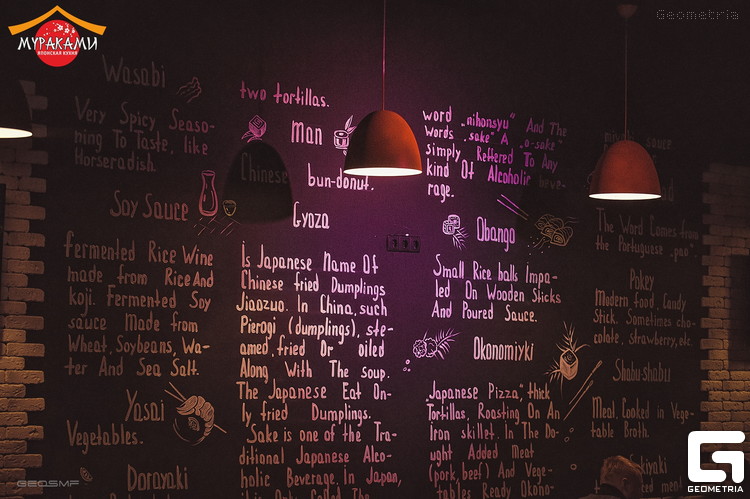 МУРАКАМИ
ЯПОНСКАЯ КУХНЯ
Geometria
Wasabi
Very Spicy Seaso-
ning To Taste, like
Horseradish.
Soy Sauce
fermented Rice Wine
made from Rice And
koji. Fermented Soy
sauce Made from
Wheat, Soybeans, Wa-
ter And Sea Salt.
Yasai
Vegetables.
Dorayaki
two tortillas.
Man
Chinese bun-donut.
Gyoza
Is Japanese Name Of
Chinese fried Dumplings
Jiaozuo. In China, such
Pierogi (dumplings), ste-
amed, fried Or oiled
Along With The soup.
The Japanese Eat On-
ly fried Dumplings.
Sake is one of the Tra-
ditional Japanese Alco-
holic Beverage. In Japan,
Called The
word „nihonsyu" And The
Words „sake" A „o-sake"
simply Reffered To Any
kind Of Alcoholic beve-
rage.
Obango
Small Rice balls Impa-
led On Wooden Sticks
And Poured Sauce.
Okonomiyki
„Japanese Pizza," thick
Tortillas, Roasting On An
Iron skillet. In The Do-
ught Added meat
(pork, beef) And Vege-
tables Ready Okono-
sauce
The Word Comes from
the Portuguese „pao"
Pokey
Modern food, Candy
Stick. Sometimes cho-
colate, Strawberry, etc.
Shabu-shabu
Meal, Cooked in Vege-
table Broth.
Sukiyaki
GEOSMF
GEOMETRIA